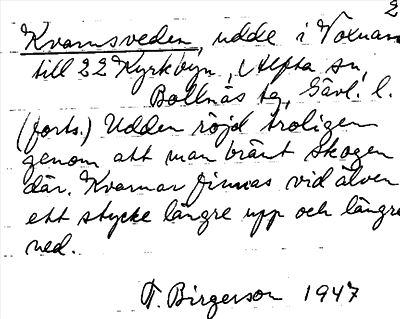 2
Kvarnsveden, udde i Voxnan
till 22 Kyrkbyn, Alfta sn,
Bollnäs tg, Gävl. l.
(forts.) Udden röjd troligen
genom att man bränt skogen
där. Kvarnar finnas vid älven
ett stycke längre upp och längre
ned.
T. Birgerson 1947